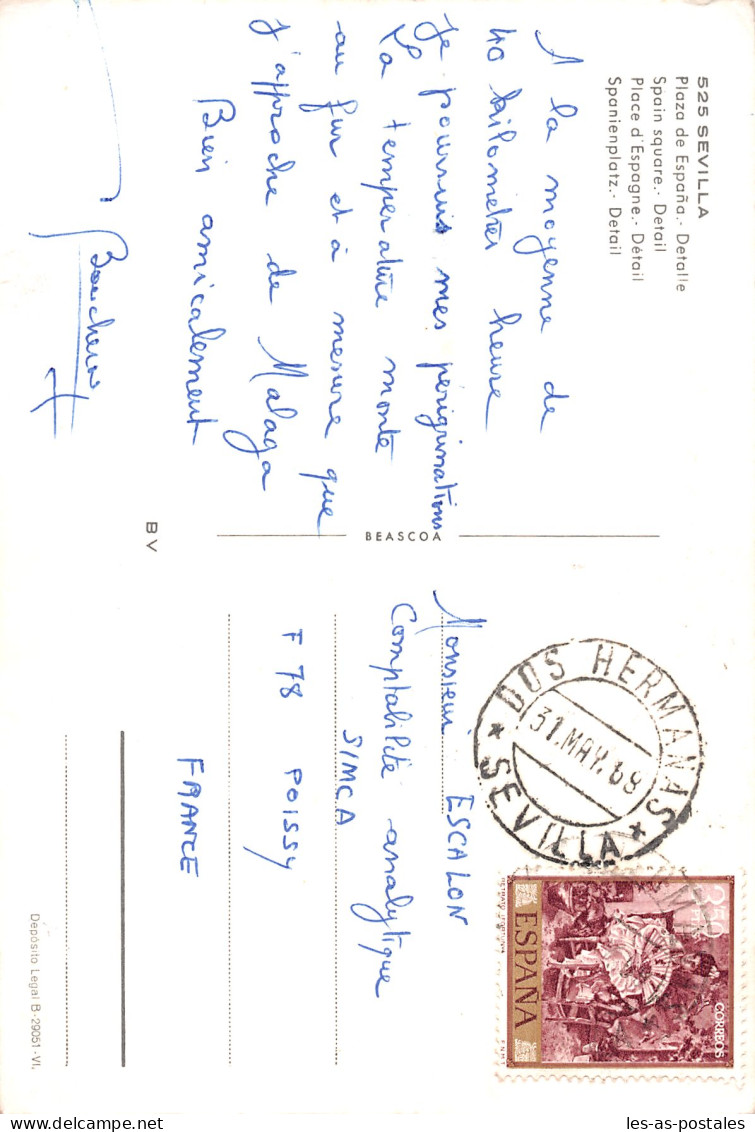 525 SEVILLA
Plaza de España.- Detalle
Spain square.- Detail
Place d'Espagne.- Détail
Spanienplatz.- Detail
A la moyenne de
40 kilomètres heure
Je poursuis mes périgrinations
La temperature monte
au fur et à mesure que
j'approche de Malaga
Bien amicalement
BEASCOA
B V
DOS HERMANAS
31.MAY.68
* SEVILLA *
3'50
PTAS
CORREOS
ESPAÑA
Monsieur ESCALON
Comptabilité analytique
SIMCA
F 78 POISSY
FRANCE
Depósito Legal B-29051-VI.
les-as-postales.com